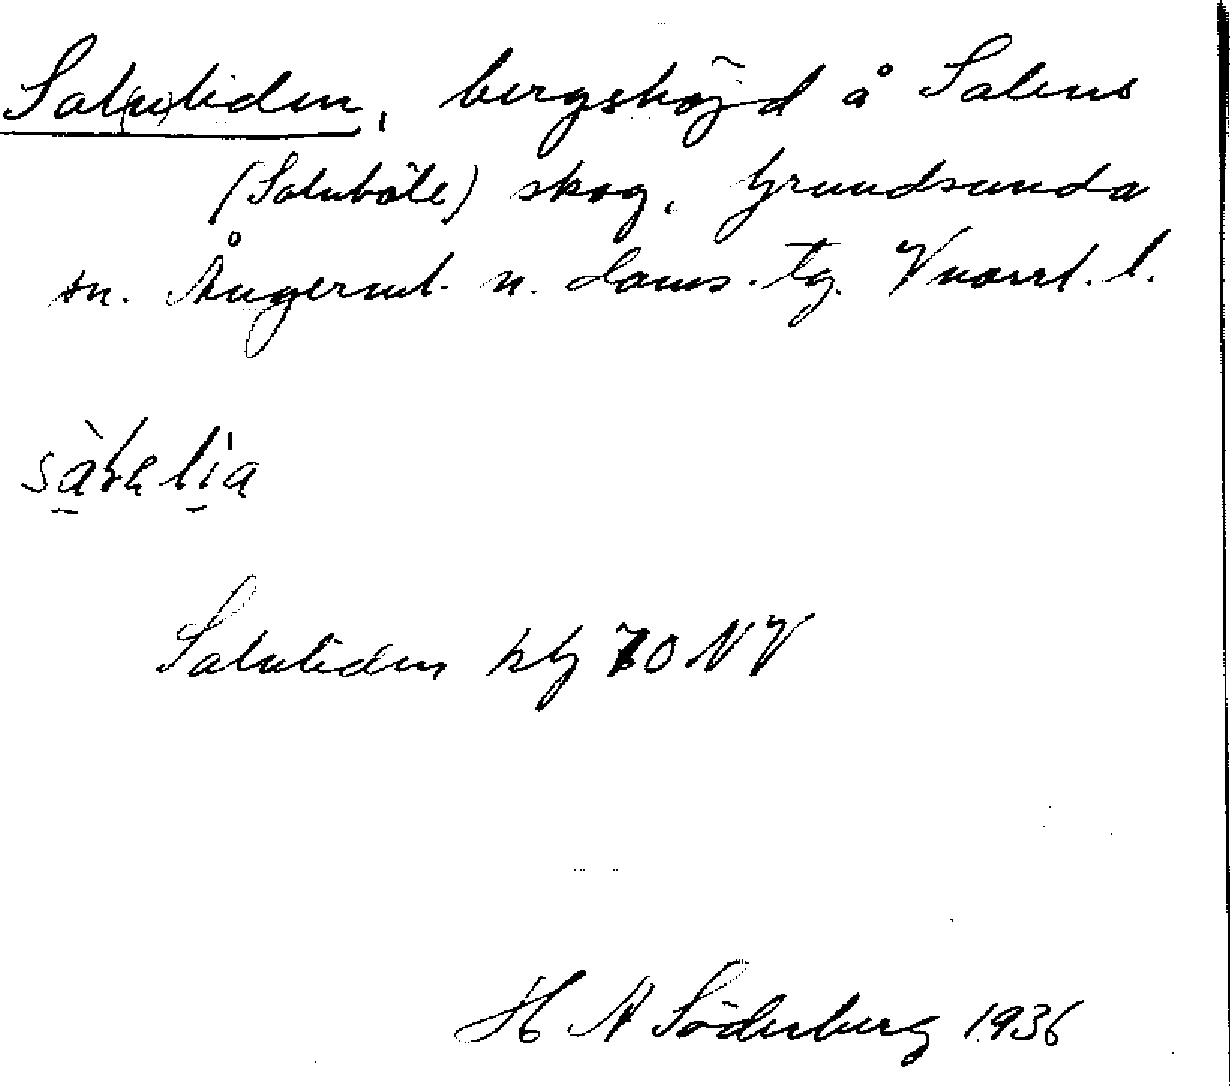 Salu(e)liden, bergshöjd å Salens
(Saluböle) skog, Grundsunda
sn. Ångerml. n. doms. tg. Vnorrl. l.
Saluliden kbl 70 NV
H A Söderberg 1936